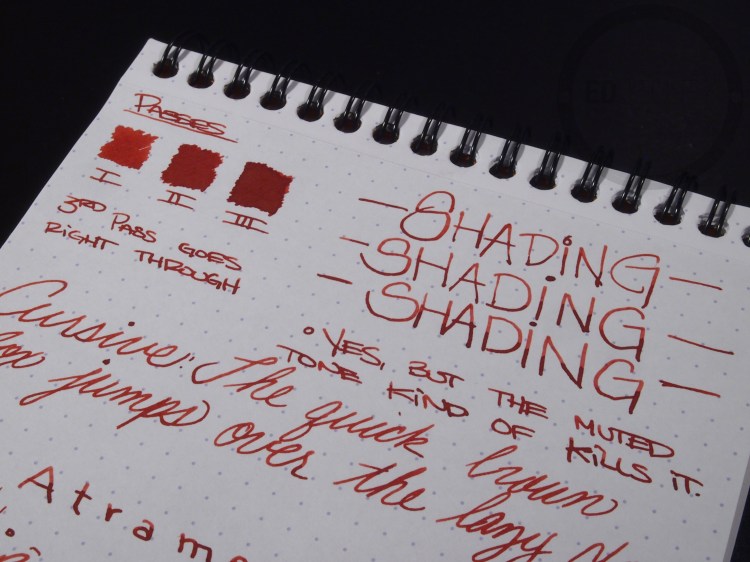 PASSES
I II III
3RD PASS GOES
RIGHT THROUGH
-SHADING-
-SHADING-
-SHADING-
• YES, BUT THE MUTED
TONE KIND OF KILLS IT.
Cursive: The quick brown
fox jumps over the lazy
Atrame